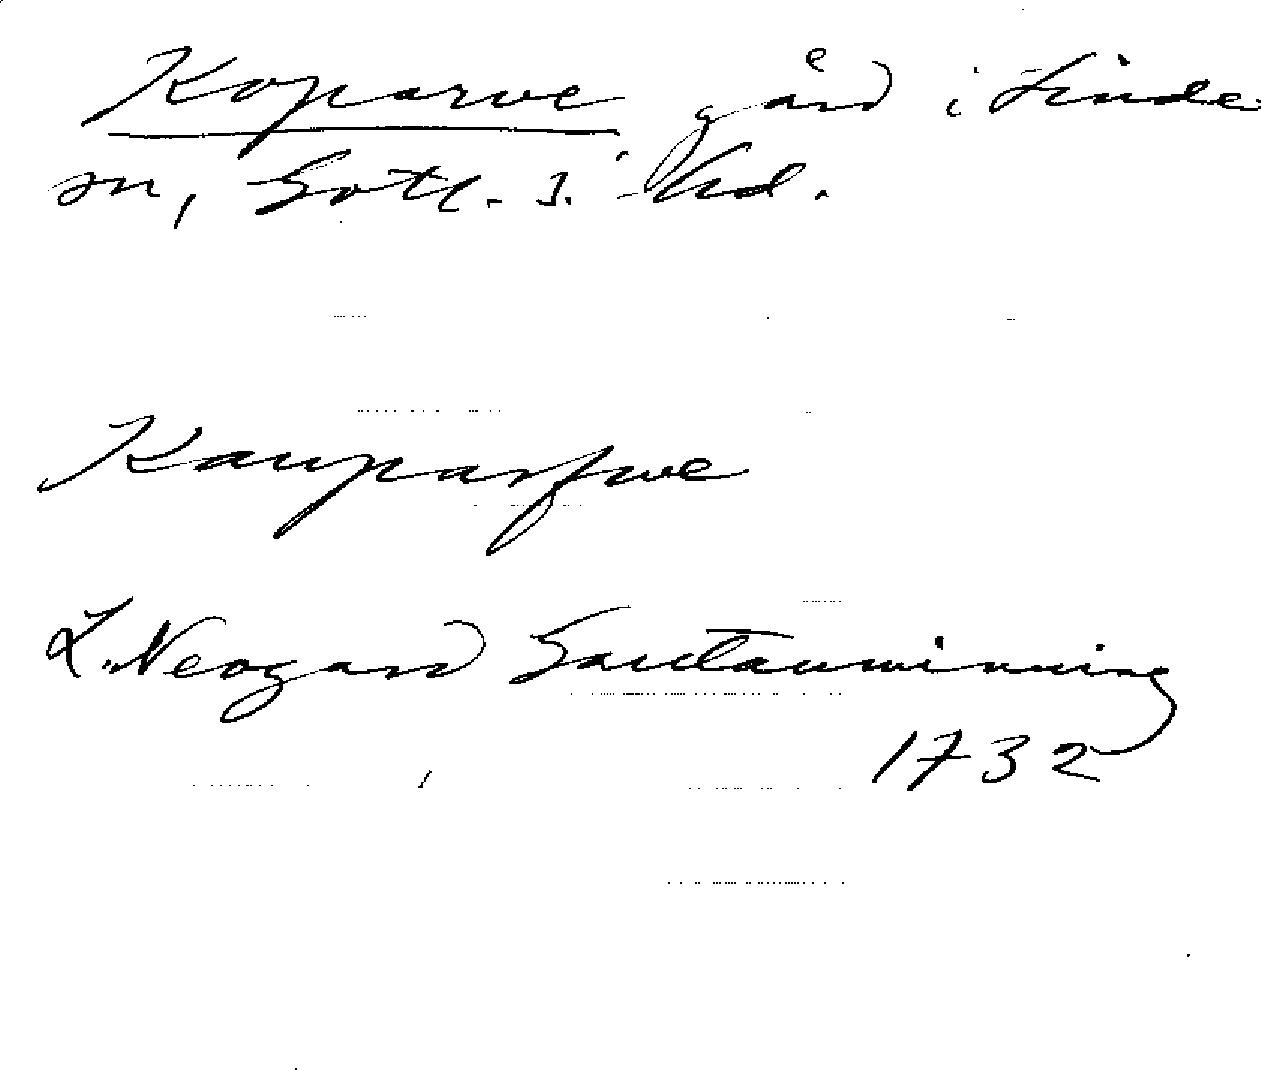 Koparve gård i Linde
sn, Gotl. s. hd.
Kauparfwe
L. Neogard Gautauminning
1732